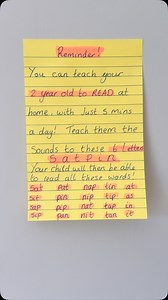 Reminder!
You can teach your
2 year old to READ at
home, with Just 5 mins
a day! Teach them the
Sounds to these 6 Letters
S a t p i n
Your child will then be able
to read all these words!
Sat pat nap tin at
Sit pin nip tip as
Sap pip nit tap in
Sip pan nit tan it